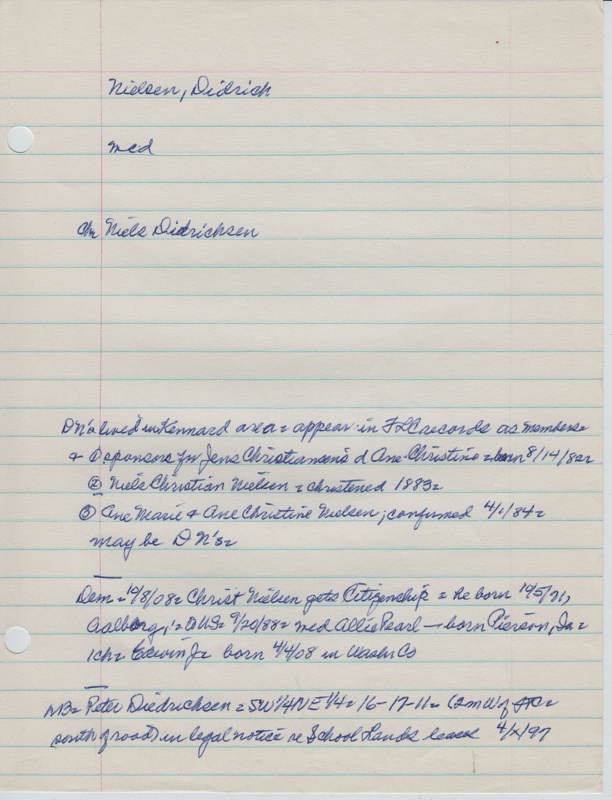 Nielsen, Didrich
mcd
ch Niels Didrichsen
DN's lived in Kennard area = appear in FLC records as members =
+ ① sponsors for Jens Christiansen's d Ane Christine = born 8/14/82 =
② Niels Christian Nielsen = christened 1883 =
③ Ane Marie & Ane Christine Nielsen; confirmed 4/1/84 =
may be DN's =
Dem = 10/8/08 = Christ Nielsen gets Citizenship = he born 10/5/71,
Aalborg, = 9/20/88 = med Allie Pearl — born Pierson, Ia =
1ch = Edwin J = born 4/4/08 in Wash Co
NB = Peter Diedrichsen = SW 1/4 NE 1/4 = 16-17-11 = (2 m W of =
south of road) in legal notice re School Lands lease 4/x/97